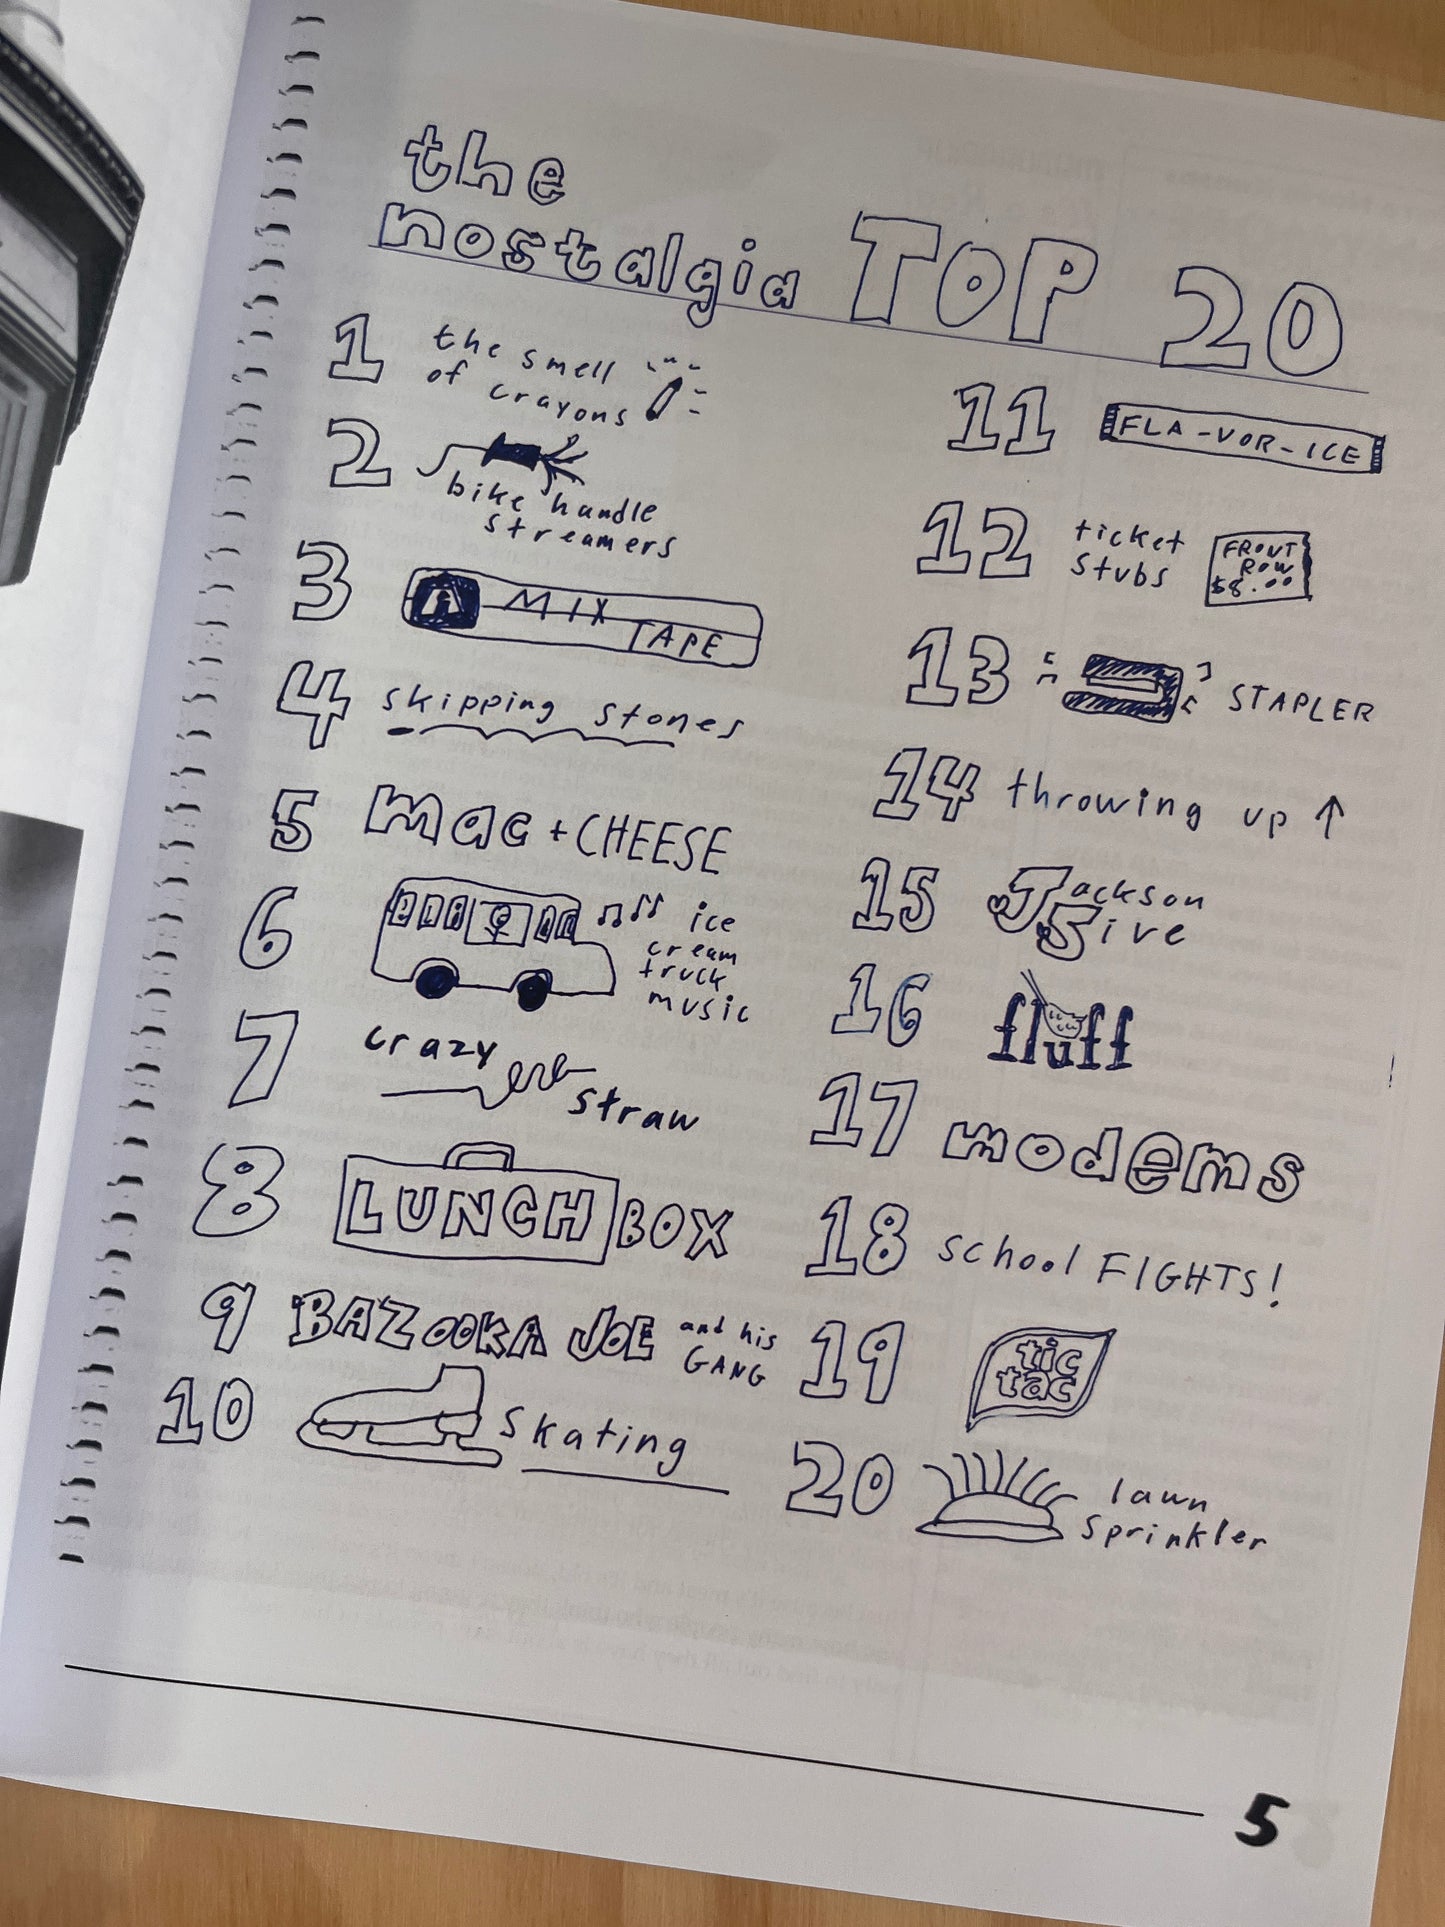 the
nostalgia TOP 20
1 the smell
of crayons
2 bike handle
streamers
3 A MIX
TAPE
4 skipping stones
5 mac + CHEESE
6 ice
cream
truck
music
7 crazy
straw
8 LUNCH BOX
9 BAZOOKA JOE and his
GANG
10 skating
11 FLA-VOR-ICE
12 ticket
stubs
FRONT
ROW
$8.00
13 STAPLER
14 throwing up ↑
15 Jackson
5ive
16 fluff
17 modems
18 school FIGHTS!
19 tic
tac
20 lawn
sprinkler
5